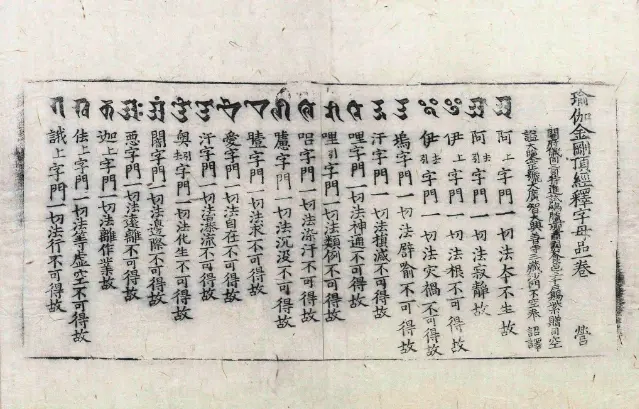 瑜伽金剛頂經釋字母品一卷 營
開府儀同三司特進試鴻臚卿肅國公食邑三千戶賜紫贈司空
諡大鑒正號大廣智大興善寺三藏沙門不空奉 詔譯
𑖀 阿上字門一切法本不生故
𑖁 阿引去字門一切法寂靜故
𑖂 伊上字門一切法根不可得故
𑖃 伊引去字門一切法灾禍不可得故
𑖄 塢字門一切法譬喻不可得故
𑖅 汙字門一切法損減不可得故
𑖆 哩字門一切法神通不可得故
𑖇 哩引字門一切法類例不可得故
𑖈 字門一切法染汙不可得故
𑖉 嚧字門一切法沉没不可得故
𑖊 曀字門一切法求不可得故
𑖋 愛字門一切法自在不可得故
𑖌 汙字門一切法瀑流不可得故
𑖍 奧去引字門一切法化生不可得故
𑖀𑖽 闇字門一切法邊際不可得故
𑖀𑖾 惡字門一切法遠離不可得故
𑖎 迦上字門一切法離作業故
𑖏 佉上字門一切法等虛空不可得故
𑖐 誐上字門一切法行不可得故